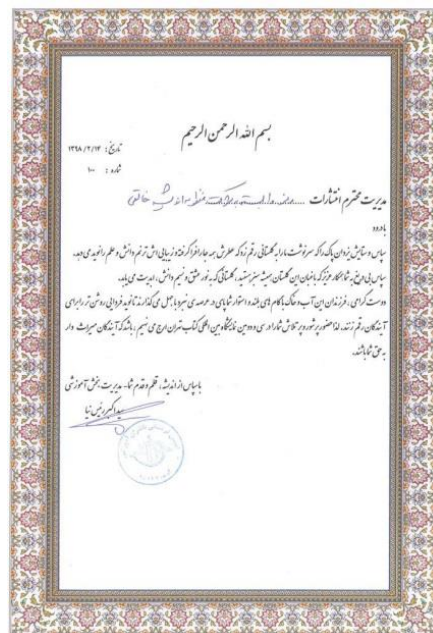 بسم الله الرحمن الرحیم
تاریخ: ۱۳۹۸/۲/۱۴
شماره: ۱۰۰
مدیریت محترم انتشارات
با درود
سپاس و ستایش یزدان پاک را که سرنوشت ما را به گلستانی رقم زد که عطرش همه جا را فرا گرفته و زیبایی اش ترنم دانش و علم را نوید می دهد.
سپاس بی دریغ به شما همکار عزیز که باغبان این گلستان همیشه سبز هستید، گلستانی که به نور عشق و نسیم دانش، ابدیت می یابد.
دوست گرامی، فرزندان این آب و خاک با گام های بلند و استوار شما پای در عرصه ی می گذارند تا نوید فردایی روشن تر را برای
آیندگان رقم زنند. لذا حضور پر شور و پر تلاش شما را در سی و دومین نمایشگاه بین المللی کتاب تهران ارج می نهیم. باشد که آیندگان میراث دار
به حق شما باشند.
با سپاس از اندیشه، قلم و قدم شما - مدیریت بخش آموزشی
سید اکبر